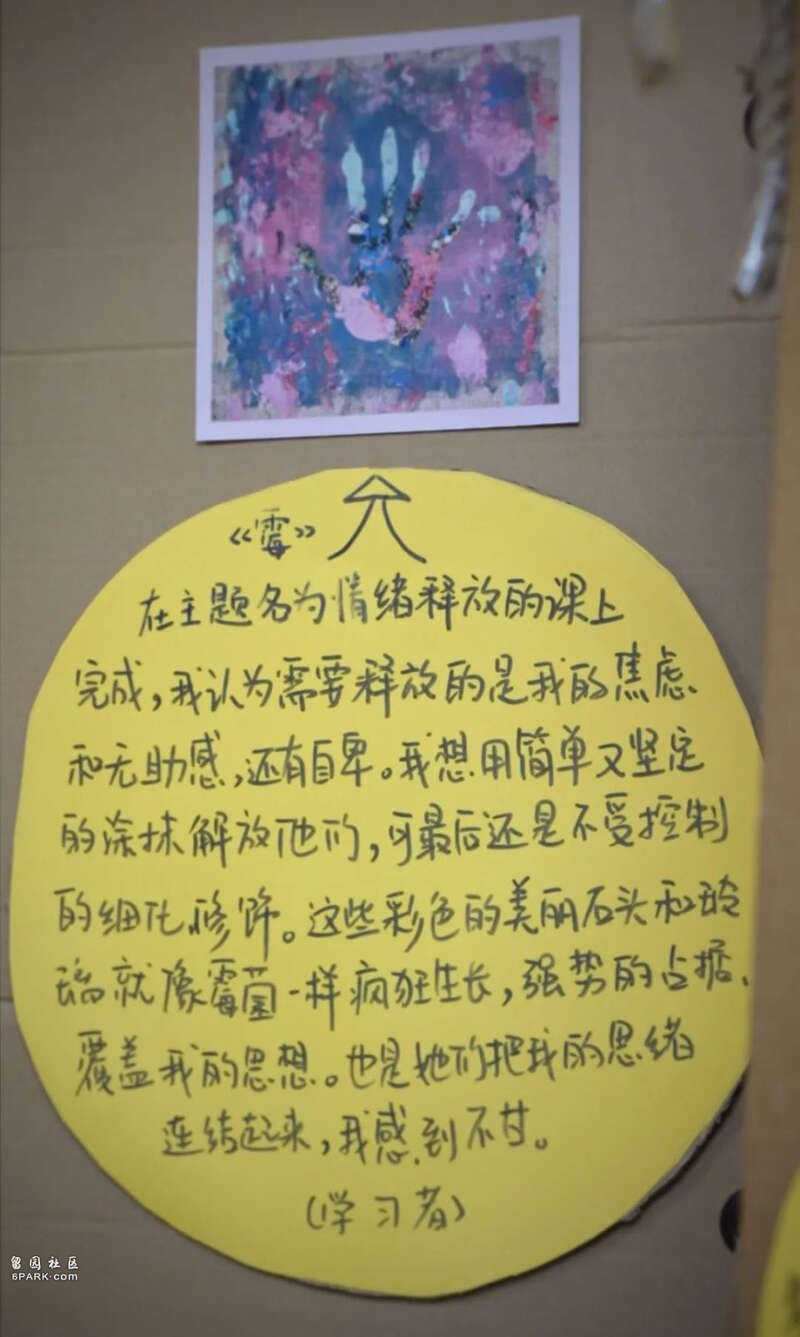 《霉》
在主题名为情绪释放的课上
完成，我认为需要释放的是我的焦虑、
和无助感，还有自卑。我想用简单又坚定
的涂抹解放他们，可最后还是不受控制
的细化修饰。这些彩色的美丽石头和玲
瑞就像霉菌一样疯狂生长，强势的占据、
覆盖我的思想。也是她们把我的思绪
连结起来，我感到不甘。
（学习者）
留园社区
6PARK.com